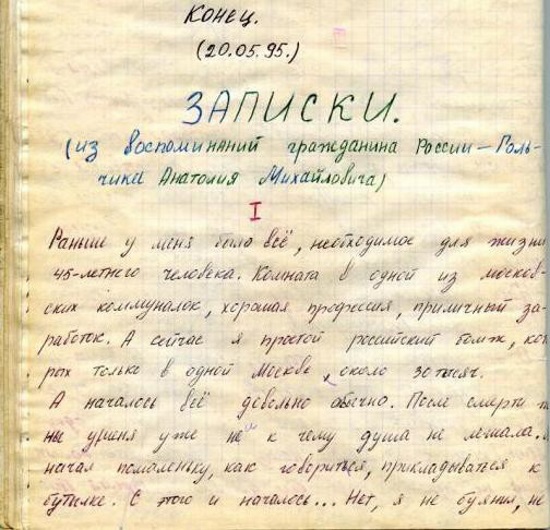 Конец.
(20.05.95.)
ЗАПИСКИ.
(из воспоминаний гражданина России — Голь-
чика Анатолия Михайловича)
I
Раньше у меня было всё, необходимое для жизни
45-летнего человека. Комната в одной из москов-
ских коммуналок, хорошая профессия, приличный за-
работок. А сейчас я простой российский бомж, кото
рых только в одной Москве, около 30 тысяч.
А началось всё довольно обычно. После смерти
ны у меня уже ни к чему душа не лежала.
начал помаленьку, как говориться, прикладываться к
бутылке. С этого и началось... Нет, я не буянил, не